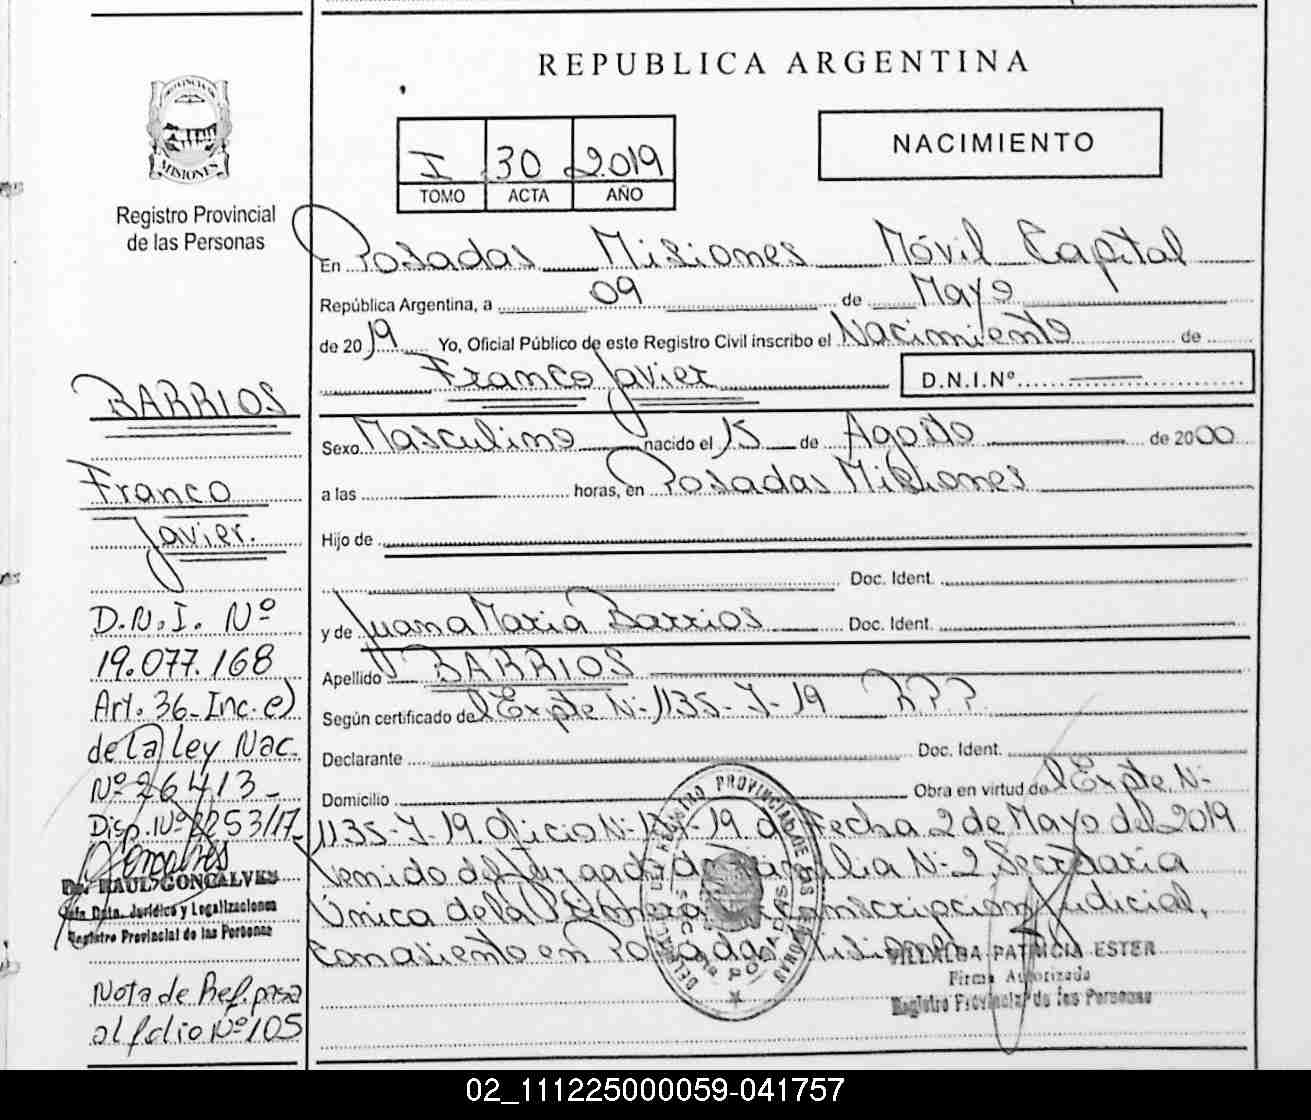 REPUBLICA ARGENTINA
PROVINCIA DE
MISIONES
Registro Provincial
de las Personas
I 30 2019
TOMO ACTA AÑO
NACIMIENTO
En Posadas Misiones Móvil Capital
República Argentina, a 09 de Mayo
de 2019 Yo, Oficial Público de este Registro Civil inscribo el Nacimiento de
Franco Javier D.N.I.Nº
Sexo Masculino nacido el 15 de Agosto de 2000
a las horas, en Posadas Misiones
Hijo de
Doc. Ident.
y de Juana Maria Barrios Doc. Ident.
Apellido BARRIOS
Según certificado del Expte N-1135-J-19 R.P.P
Declarante Doc. Ident.
Domicilio Obra en virtud del Expte N-
1135-J-19. Oficio N- -19. de Fecha 2 de Mayo del 2019
Venido del Juzgado de Familia N-2, Secretaria
Única de la Primera Circunscripción Judicial,
con asiento en Posadas Misiones
BARRIOS
Franco
Javier.
D.N.I. Nº
19.077.168
Art. 36-Inc. e)
de la ley Nac.
Nº 26413-
Disp. Nº 2253/17-
Dr. RAUL GONCALVES
Jefe Dpto. Jurídico y Legalizaciones
Registro Provincial de las Personas
Nota de Ref. pasa
al folio Nº 105
VILLALBA PATRICIA ESTER
Firma Autorizada
Registro Provincial de las Personas
REGISTRO PROVINCIAL DE LAS PERSONAS
POSADAS
02_111225000059-041757